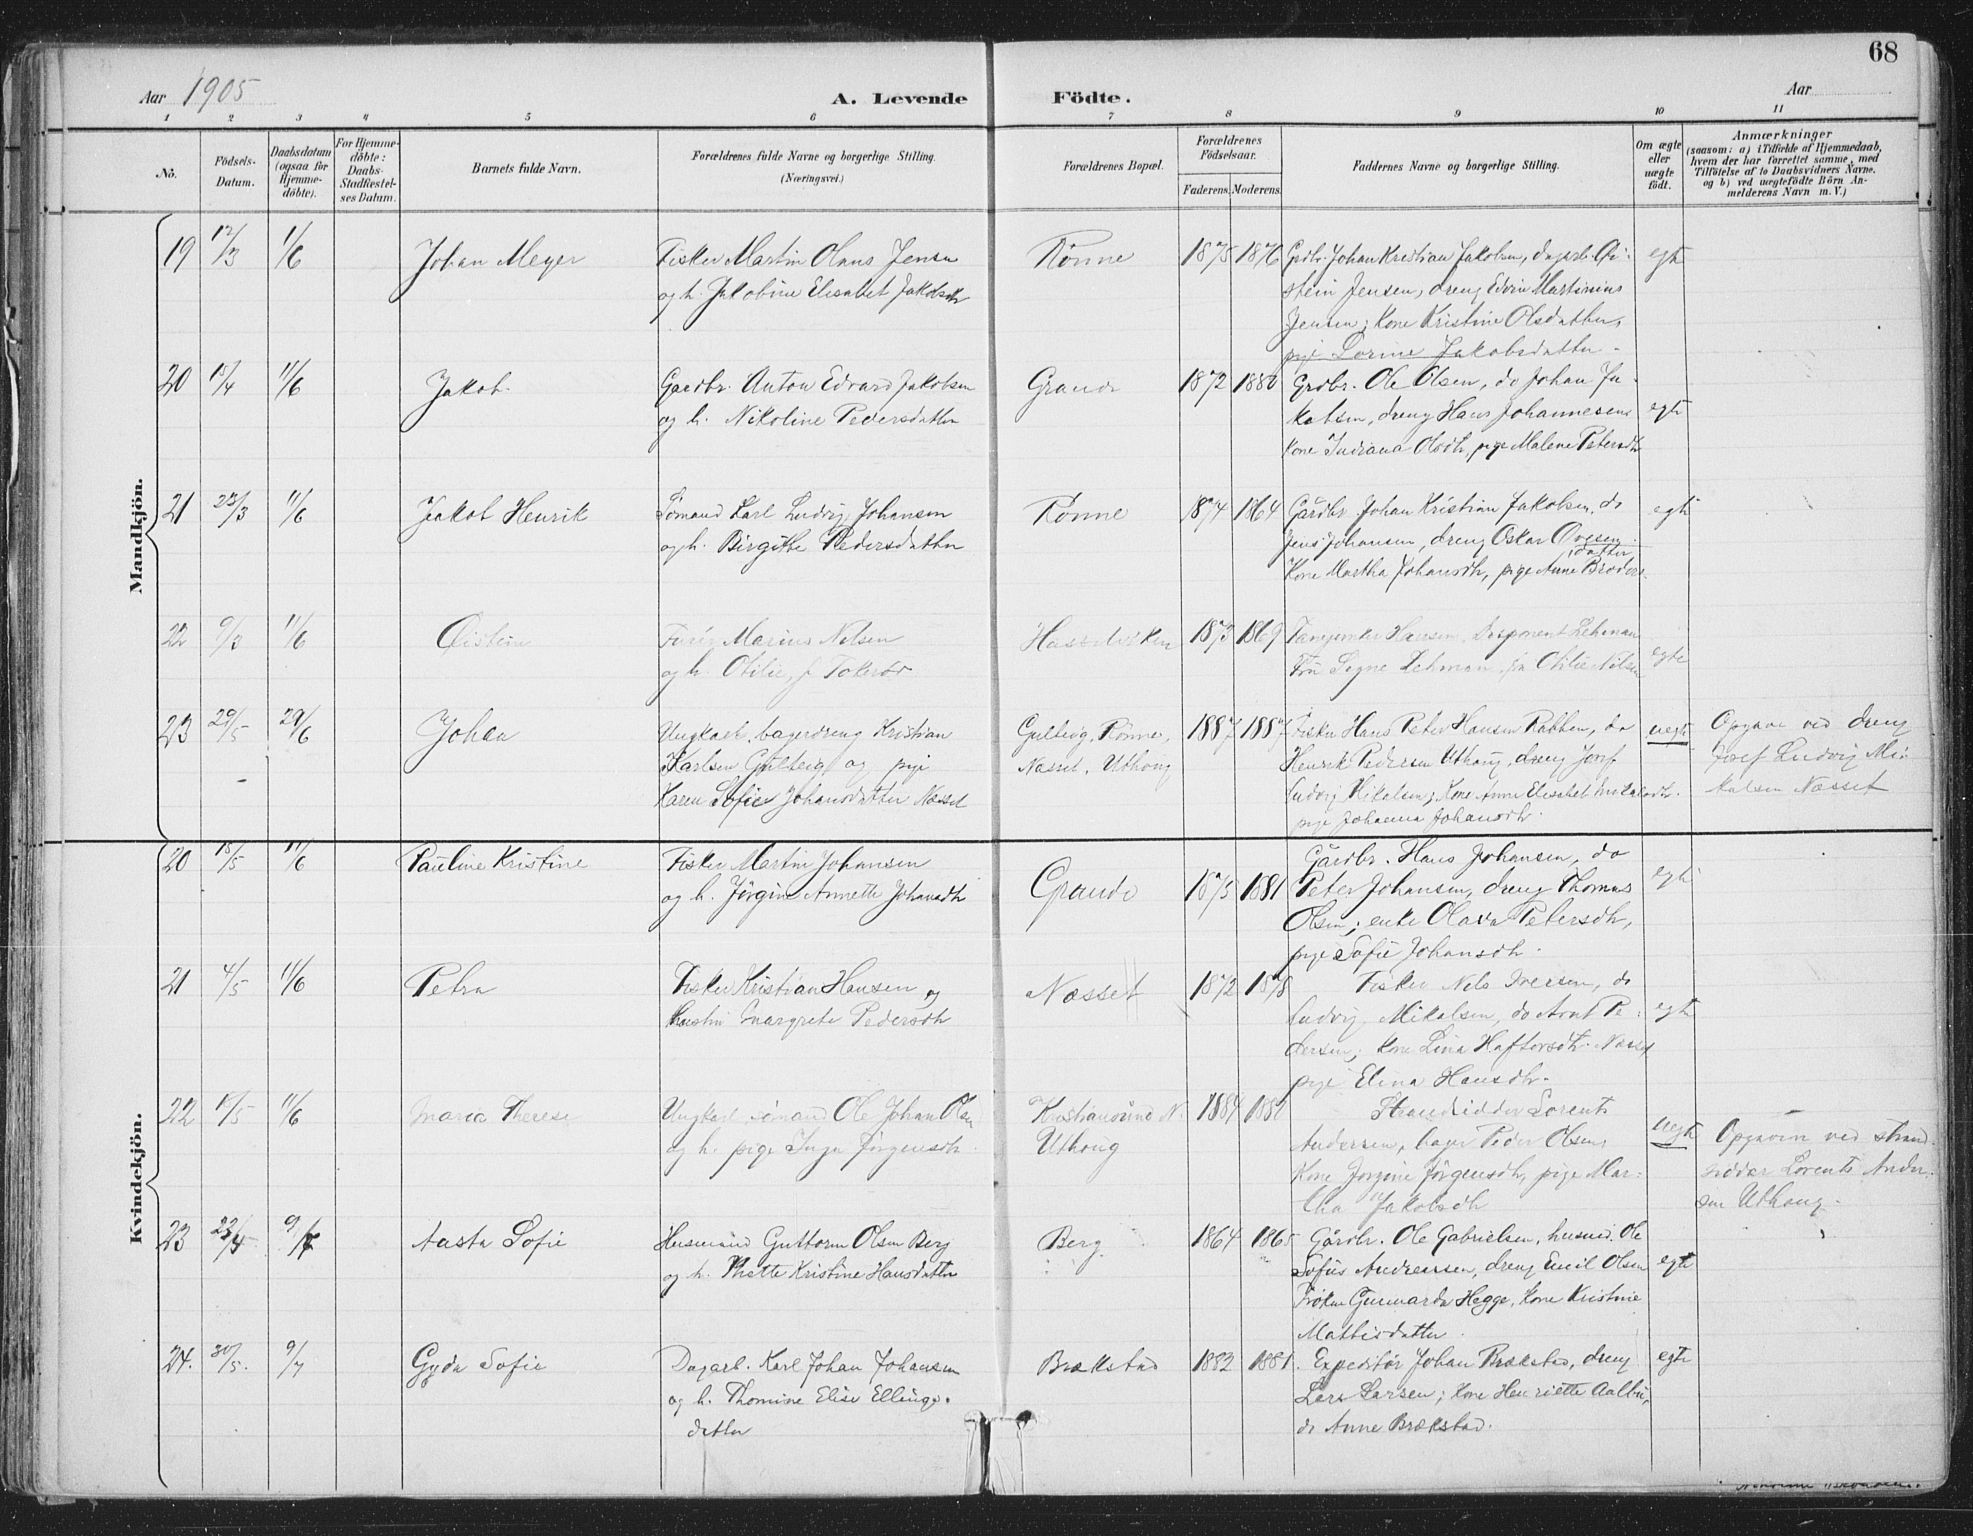 68
Aar 1905
A. Levende Födte.
Aar
1 2 3 4 5 6 7 8 9 10 11
No.
Födsels-Datum.
Daabsdatum (ogsaa for Hjemme-döbte).
For Hjemme-döbte: Daabs-Stadfestel-ses Datum.
Barnets fulde Navn.
Forældrenes fulde Navne og borgerlige Stilling.
(Næringsvei.)
Forældrenes Bopæl.
Forældrenes Födselsaar.
Faderens. Moderens.
Faddernes Navne og borgerlige Stilling.
Om ægte eller uægte födt.
Anmærkninger
(saasom: a) i Tilfælde af Hjemmedaab,
hvem der har forrettet samme, med
Tilföielse af to Daabsvidners Navne.
og b) ved uægtefödte Börn An-
melderens Navn m. V.)
Mandkjön.
19 12/3 11/6 Johan Meyer Fisker Martin Olaus Jensen Rönne 1875 1876 Grdbr. Johan Kristian Jakobsen, dagarb. Öi- egte
og h. Jakobine Elisabet Jakobsdtr stein Jensen, dreng Edvin Martinius
Jensen; Kone Kristine Olsdatter,
pige Lorine Jakobsdatter.
20 15/4 11/6 Jakob. Gaardbr. Anton Edvard Jakobsen Grande 1872 1880 Grdbr. Ole Olsen, do Johan Ja-
og h. Nikoline Pedersdatter kobsen, dreng Hans Johannesen egte
Kone Indiana Olsdtr, pige Malene Petersdtr
21 23/3 11/6 Jakob Henrik Sömand Karl Ludvig Johansen Rönne 1874 1864 Gårdbr Johan Kristian Jakobsen, do egte
og h. Birgitte Pedersdatter Jens Johansen, dreng Oskar Ovesen
Kone Martha Johansdtr, pige Anne Broders-
datter
22 9/3 11/6 Öistein Marius Nelsen Hasselviken 1873 1869 Hansen, Disponent Lehman
og h. Otilie, f. Fru Signe Lehman, Otilie Nilsen egte
23 29/5 29/6 Johan Ungkarl, bagerdreng Kristian Gulbrig, Rönne, 1887 1887 Fisker Hans Peter Hansen Rabben, do uegte Opgave ved dreng
Karlsen og pige Næsset, Uthaug Henrik Pedersen Uthaug, dreng Josef Josef Ludvig Mi-
Karen Sofie Johansdatter Næsset Ludvig Mikalsen; Kone Anne Elisabet Mikalsdtr. kalsen Næsset
pige Johanna Johansdtr.
Kvindekjön.
20 15/5 11/6 Pauline Kristine Fisker Martin Johansen Grande 1875 1881 Gårdbr. Hans Johansen, do egte
og h. Jörgine Annette Johansdtr Peter Johansen, dreng Thomas
Olsen; enke Olava Petersdtr,
pige Sofie Johansdtr.
21 4/5 11/6 Petra Fisker Kristian Hansen og Næsset 1872 1878 Fisker Nels Iversen, do
Margrete Pedersdtr Ludvig Mikalsen, do Arnt Pe- egte
dersen; Kone Lina Haftorsdtr. Næsset
pige Elina Hansdtr.
22 11/6 Maria Therese Ungkarl sömand Ole Johan Olsen Kristiansund N. 1884 1880 Strandsidder Lorents
og h. pige Inga Jörgensdtr. Uthaug Andersen, bager Peder Olsen, uegte Opgaven ved strand-
Kone Jörgine Jörgensdtr, pige Mar- sidder Lorents Ander-
tha Jakobsdtr sen Uthaug.
23 23/4 9/7 Aasta Sofie Husmand Guttorm Olsen Berg Berg 1864 1865 Gårdbr. Ole Gabrielsen, husmd. Ole
og h. Mette Kristine Hansdatter Sofus Andreassen, dreng Emil Olsen egte
Fröken Gunnarda Hegge, Kone Kristine
Mathisdatter.
24. 30/5. 9/7 Gyda Sofie Dagarb. Karl Johan Johansen Brækstad 1882 1881. Expeditör Johan Brækstad, dreng egte
og h. Thomine Elise Ellings- Lars Larsen; Kone Henriette Aalbu,
datter do Anne Brækstad.